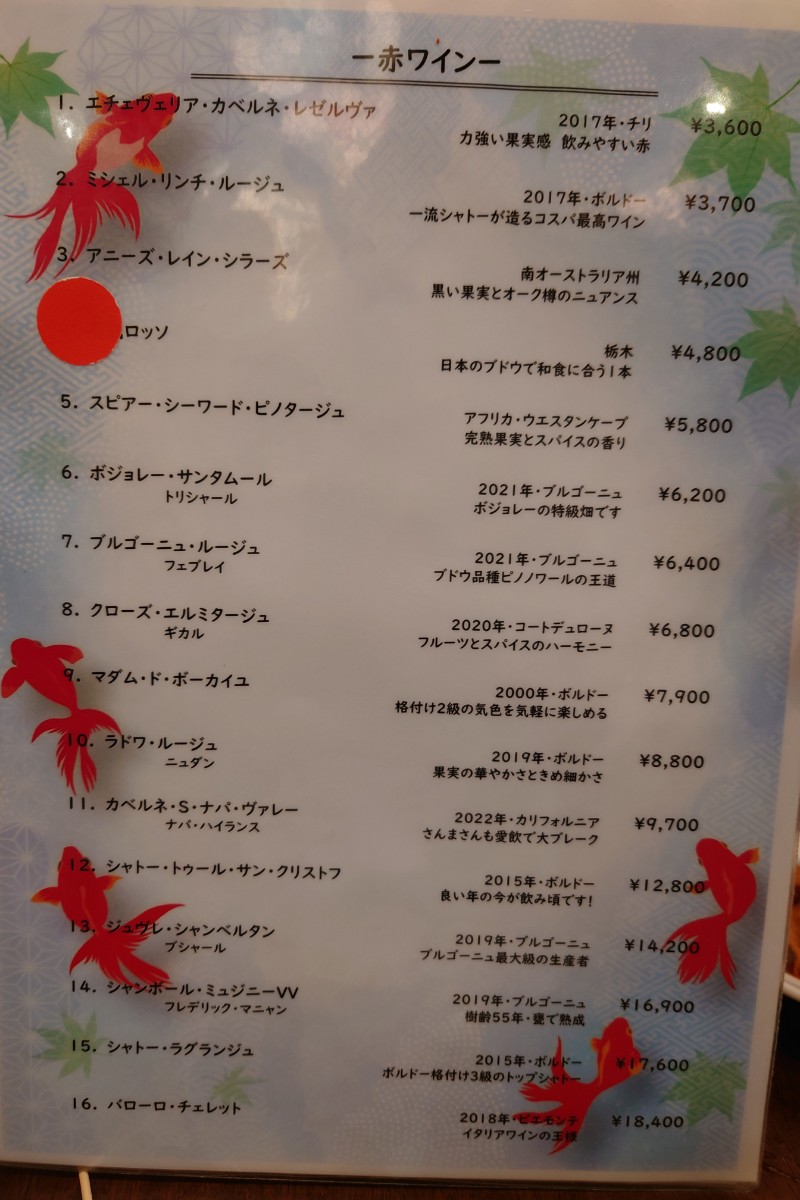 ー赤ワインー
1. エチェヴェリア・カベルネ・レゼルヴァ
2017年・チリ ¥3,600
力強い果実感 飲みやすい赤
2. ミシェル・リンチ・ルージュ
2017年・ボルドー ¥3,700
一流シャトーが造るコスパ最高ワイン
3. アニーズ・レイン・シラーズ
南オーストラリア州 ¥4,200
黒い果実とオーク樽のニュアンス
ロッソ
栃木 ¥4,800
日本のブドウで和食に合う1本
5. スピアー・シーワード・ピノタージュ
アフリカ・ウエスタンケープ ¥5,800
完熟果実とスパイスの香り
6. ボジョレー・サンタムール
トリシャール
2021年・ブルゴーニュ ¥6,200
ボジョレーの特級畑です
7. ブルゴーニュ・ルージュ
フェブレイ
2021年・ブルゴーニュ ¥6,400
ブドウ品種ピノノワールの王道
8. クローズ・エルミタージュ
ギカル
2020年・コートデュローヌ ¥6,800
フルーツとスパイスのハーモニー
9. マダム・ド・ボーカイユ
2000年・ボルドー ¥7,900
格付け2級の気色を気軽に楽しめる
10. ラドワ・ルージュ
ニュダン
2019年・ボルドー ¥8,800
果実の華やかさときめ細かさ
11. カベルネ・S・ナパ・ヴァレー
ナパ・ハイランス
2022年・カリフォルニア ¥9,700
さんまさんも愛飲で大ブレーク
12. シャトー・トゥール・サン・クリストフ
2015年・ボルドー ¥12,800
良い年の今が飲み頃です!
13. ジュヴレ・シャンベルタン
ブシャール
2019年・ブルゴーニュ ¥14,200
ブルゴーニュ最大級の生産者
14. シャンボール・ミュジニーVV
フレデリック・マニャン
2019年・ブルゴーニュ ¥16,900
樹齢55年・甕で熟成
15. シャトー・ラグランジュ
2015年・ボルドー ¥17,600
ボルドー格付け3級のトップシャトー
16. バローロ・チェレット
2018年・ピエモンテ ¥18,400
イタリアワインの王様